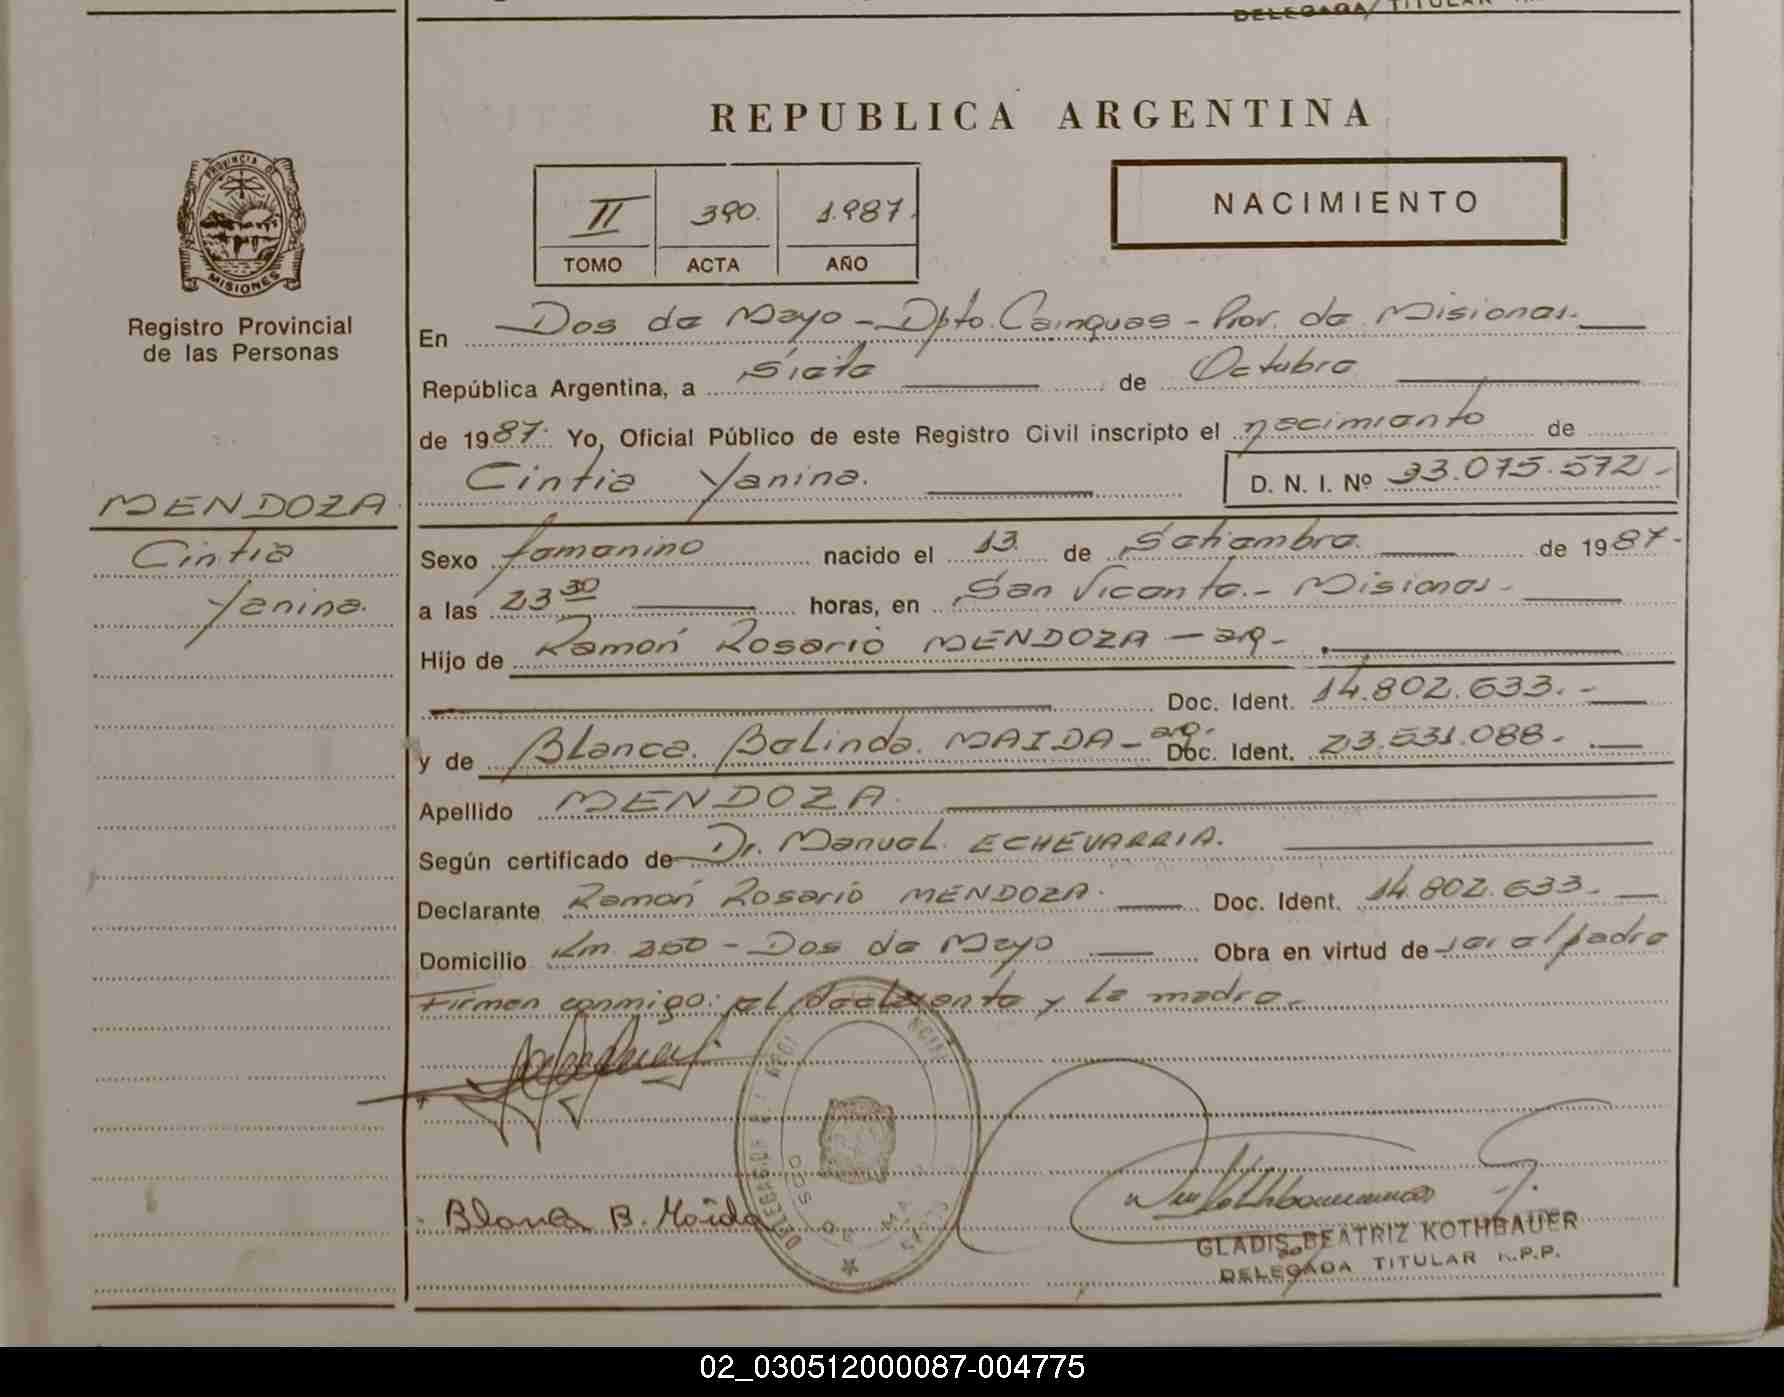 DELEGADA TITULAR
REPUBLICA ARGENTINA
PROVINCIA DE
MISIONES
Registro Provincial
de las Personas
II 390. 1.987.
TOMO ACTA AÑO
NACIMIENTO
En Dos de Mayo - Dpto. Cainguas - Prov. de Misiones.
República Argentina, a Siete de Octubre
de 1987. Yo, Oficial Público de este Registro Civil inscripto el nacimiento de
Cintia Yanina.
D. N. I. Nº 33.075.572.-
MENDOZA
Cintia
Yanina.
Sexo femenino nacido el 13 de Setiembre de 1987.
a las 23 30 horas, en San Vicente.- Misiones-
Hijo de Ramón Rosario MENDOZA - arg-
Doc. Ident. 14.802.633.-
y de Blanca Belinda MAIDA - arg. Doc. Ident. 23.531.088-
Apellido MENDOZA
Según certificado de Dr. Manuel ECHEVARRIA.
Declarante Ramón Rosario MENDOZA. Doc. Ident. 14.802.633-
Domicilio Km. 250 - Dos de Mayo Obra en virtud de ser el padre
Firman conmigo: el declarente y la madre.-
Blanca B. Maida
DOS DE MAYO
GLADIS BEATRIZ KOTHBAUER
DELEGADA TITULAR R.P.P.
02_030512000087-004775